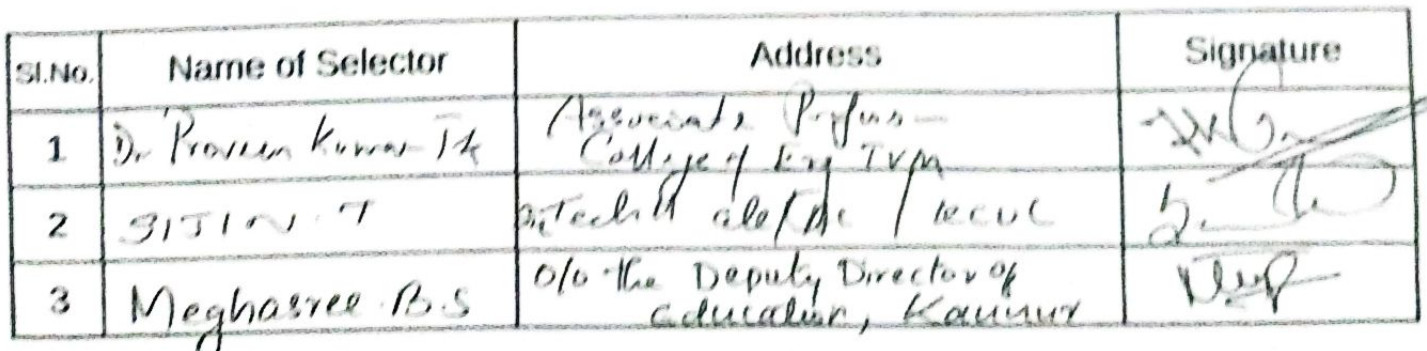 Sl.No. Name of Selector Address Signature
1 Dr Praveen Kumar TK Associate Profess
College of Eng TVM
2 SIJIN.T
3 Meghasree.B.S O/o the Deputy Director of
Education, Kannur